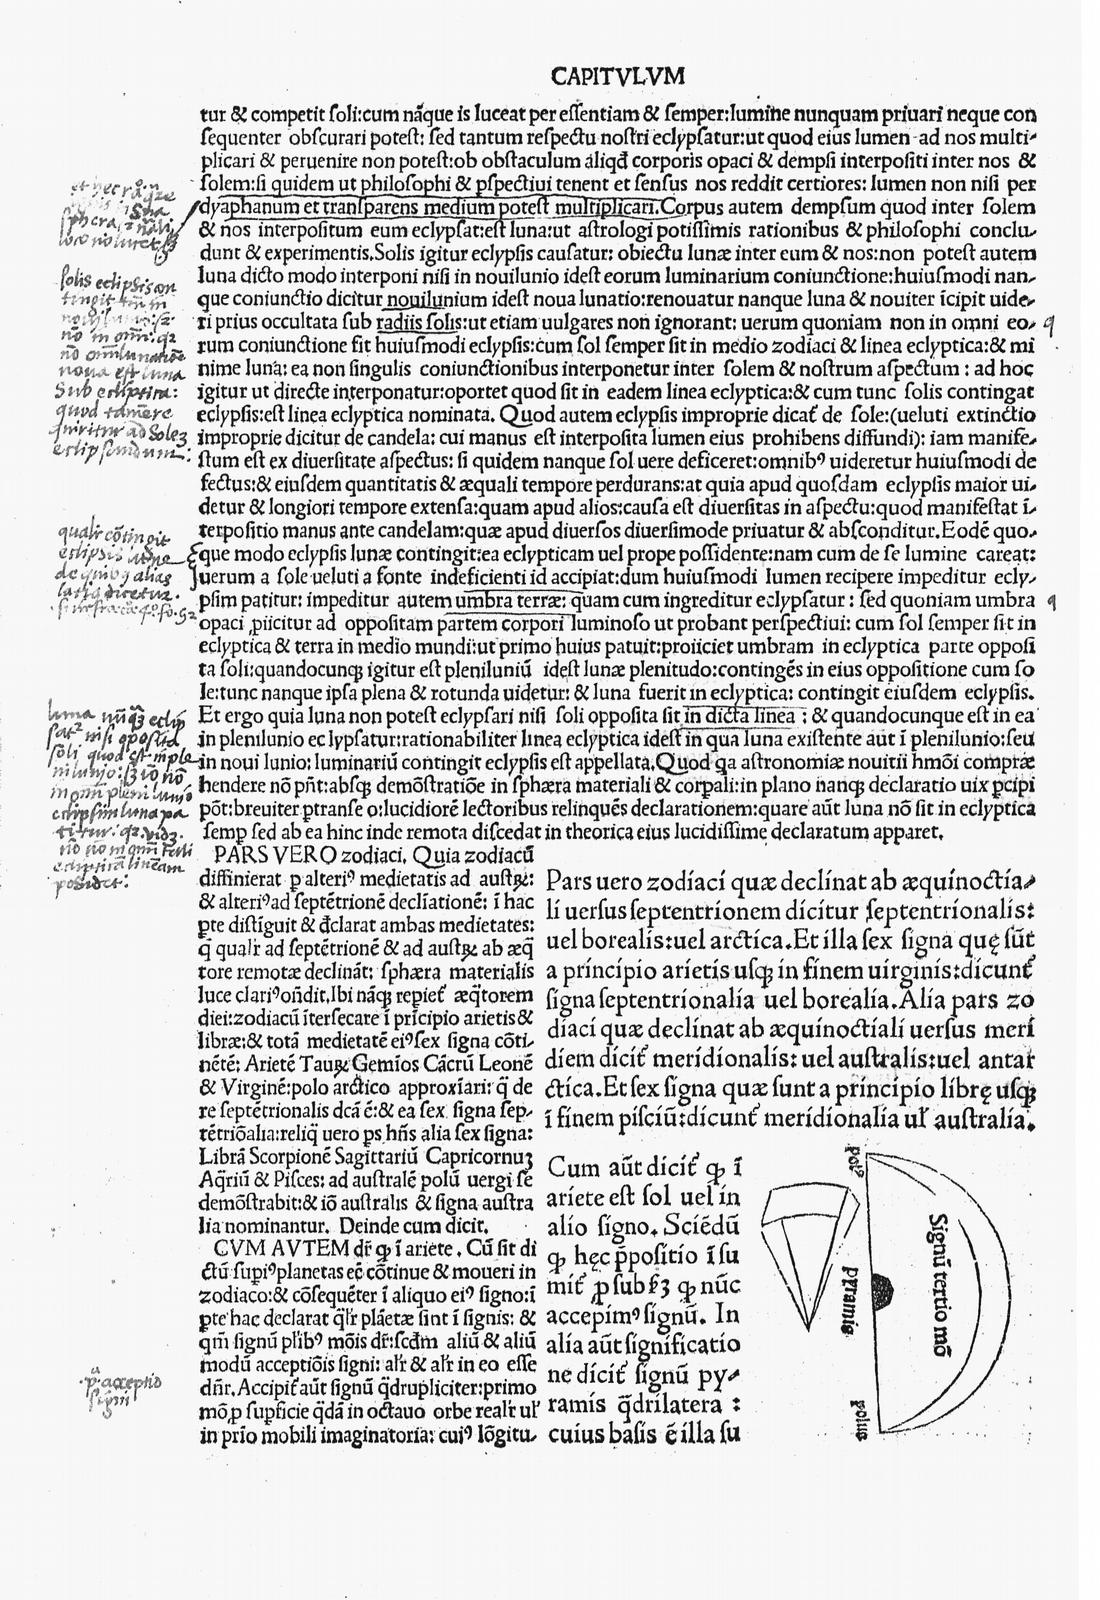 CAPITVLVM
tur & competit soli:cum nāque is luceat per essentiam & semper:lumine nunquam priuari neque con
sequenter obscurari potest: sed tantum respectu nostri eclypsatur:ut quod eius lumen ad nos multi-
plicari & peruenire non potest:ob obstaculum aliqđ corporis opaci & dempsi interpositi inter nos &
solem:si quidem ut philosophi & pspectiui tenent et sensus nos reddit certiores: lumen non nisi per
dyaphanum et transparens medium potest multiplicari.Corpus autem dempsum quod inter solem
& nos interpositum eum eclypsat:est luna:ut astrologi potissimis rationibus & philosophi conclu-
dunt & experimentis.Solis igitur eclypsis causatur: obiectu lunæ inter eum & nos:non potest autem
luna dicto modo interponi nisi in nouilunio idest eorum luminarium coniunctione:huiusmodi nan-
que coniunctio dicitur nouilunium idest noua lunatio:renouatur nanque luna & nouiter īcipit uide-
ri prius occultata sub radiis solis:ut etiam uulgares non ignorant: uerum quoniam non in omni eo-
rum coniunctione fit huiusmodi eclypsis:cum sol semper sit in medio zodiaci & linea ecliptica:& mi
nime luna: ea non singulis coniunctionibus interponetur inter solem & nostrum aspectum : ad hoc
igitur ut directe interponatur:oportet quod sit in eadem linea ecliptica:& cum tunc solis contingat
eclypsis:est linea eclyptica nominata. Quod autem eclypsis improprie dicať de sole:(ueluti extinctio
improprie dicitur de candela: cui manus est interposita lumen eius prohibens diffundi): iam manife-
stum est ex diuersitate aspectus: si quidem nanque sol uere deficeret:omnibꝰ uideretur huiusmodi de
fectus:& eiusdem quantitatis & æquali tempore perdurans:at quia apud quosdam eclypsis maior ui-
detur & longiori tempore extensa:quam apud alios:causa est diuersitas in aspectu:quod manifestat ī-
terpositio manus ante candelam:quæ apud diuersos diuersimode priuatur & absconditur.Eodē quo-
que modo eclypsis lunæ contingit:ea eclypticam uel prope possidente:nam cum de se lumine careat:
uerum a sole ueluti a fonte indeficienti id accipiat:dum huiusmodi lumen recipere impeditur ecly-
psim patitur: impeditur autem umbra terræ: quam cum ingreditur eclypsatur : sed quoniam umbra
opaci ꝓiicitur ad oppositam partem corpori luminoso ut probant perspectiui: cum sol semper sit in
eclyptica & terra in medio mundi:ut primo huius patuit:proiiciet umbram in eclyptica parte opposi
ta soli:quandocunqꝫ igitur est pleniluniū idest lunæ plenitudo:contingēs in eius oppositione cum so
le:tunc nanque ipsa plena & rotunda uidetur: & luna fuerit in eclyptica: contingit eiusdem eclypsis.
Et ergo quia luna non potest eclypsari nisi soli opposita sit in dicta linea : & quandocunque est in ea
in plenilunio eclypsatur:rationabiliter linea ecliptica idest in qua luna existente aut ī plenilunio:seu
in noui lunio: luminariū contingit eclypsis est appellata.Quod ꝗa astronomiæ nouitii hmōi compræ
hendere nō pñt:absqꝫ demōstratiōe in sphæra materiali & corꝑali:in plano nanqꝫ declaratio uix ꝑcipi
pōt:breuiter ꝑtranse o:lucidiorē lectoribus relinquēs declarationem:quare aūt luna nō sit in ecliptica
semꝑ sed ab ea hinc inde remota discedat in theorica eius lucidissime declaratum apparet.
PARS VERO zodiaci. Quia zodiacū
diffinierat ꝑ alteriꝰ medietatis ad austꝝ:
& alteriꝰ ad septētrionē decliationē: ī hac
ꝑte distiguit & đclarat ambas medietates:
q̄ qualr̄ ad septētrionē & ad austꝝ ab æq̄
tore remotæ declināt: sphæra materialis
luce clariꝰ oñdit.Ibi nāqꝫ repieť æq̄torem
diei:zodiacū ītersecare ī prīcipio arietis &
libræ:& totā medietatē eiꝰ sex signa cōti-
nētē: Arietē Tauꝝ Gemīos Cācrū Leonē
& Virginē:polo arctico approxīari: q̄ de
re septētrionalis dcā ē:& ea sex signa sep-
tētriōalia:reliq̄ uero ꝑs hñs alia sex signa:
Librā Scorpionē Sagittariū Capricornuꝫ
Aq̄riū & Pisces: ad australē polū uergi se
demōstrabit:& iō australis & signa austra
lia nominantur. Deinde cum dicit.
CVM AVTEM dr̄ ꝙ ī ariete . Cū sit di
ctū supiꝰ planetas eē cōtinue & moueri in
zodiaco:& cōsequēter ī aliquo eiꝰ signo:ī
ꝑte hac declarat q̄lr̄ plāetæ sint ī signis: &
qm̄ signū plibꝰ mōis dr̄:scđm aliū & aliū
modū acceptiōis signi: alr̄ & alr̄ in eo esse
dñr.Accipiť aūt signū q̄drupliciter:primo
mō,ꝓ suꝑficie q̄dā in octauo orbe realr̄ ul'
in prio mobili imaginatoria: cuiꝰ lōgitu-
Pars uero zodiaci quæ declinat ab æquinoctia-
li uersus septentrionem dicitur septentrionalis:
uel borealis:uel arctica.Et illa sex signa quę sūt
a principio arietis usqꝫ in finem uirginis:dicunť
signa septentrionalia uel borealia.Alia pars zo
diaci quæ declinat ab æquinoctiali uersus meri
diem diciť meridionalis: uel australis:uel antar
ctica.Et sex signa quæ sunt a principio librę usqꝫ
ī finem pisciū:dicunť meridionalia ul' australia.
Cum aūt diciť ꝙ ī
ariete est sol uel in
alio signo. Sciēdū
ꝙ hęc p̄positio ī su
miť ꝓ sub ꝫ ꝙ nūc
accepimꝰ signū. In
alia aūt significatio
ne diciť signū py-
ramis q̄drilatera :
cuius basis ē illa su
polꝰ
Signū tertio mō
pyramis
polus